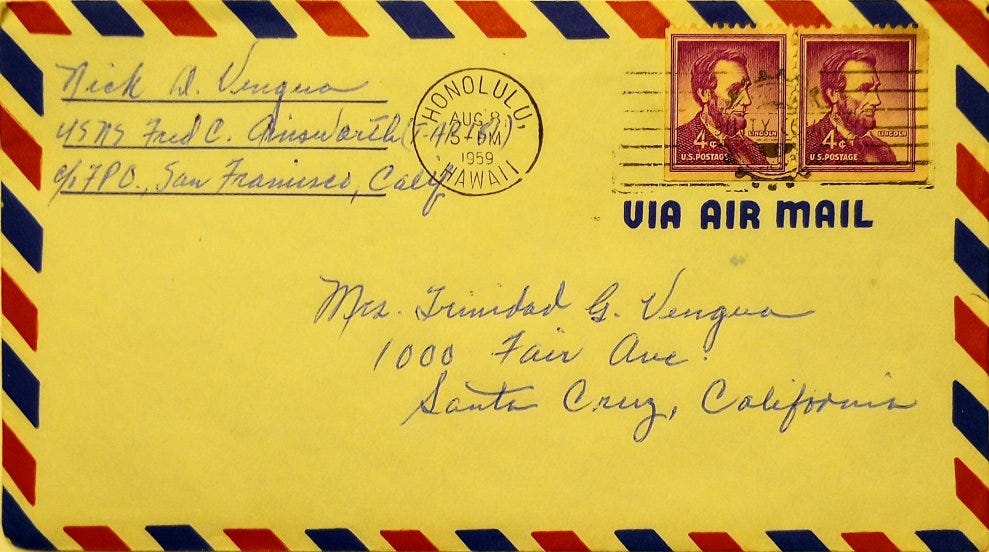 Nick D. Vengua
USNS Fred C. Ainsworth (T-AP-181)
c/o FPO., San Francisco, Calif
HONOLULU,
AUG 8
PM
1959
HAWAII
4¢ LINCOLN
U.S. POSTAGE
4¢ LINCOLN
U.S. POSTAGE
VIA AIR MAIL
Mrs. Trinidad G. Vengua
1000 Fair Ave.
Santa Cruz, California